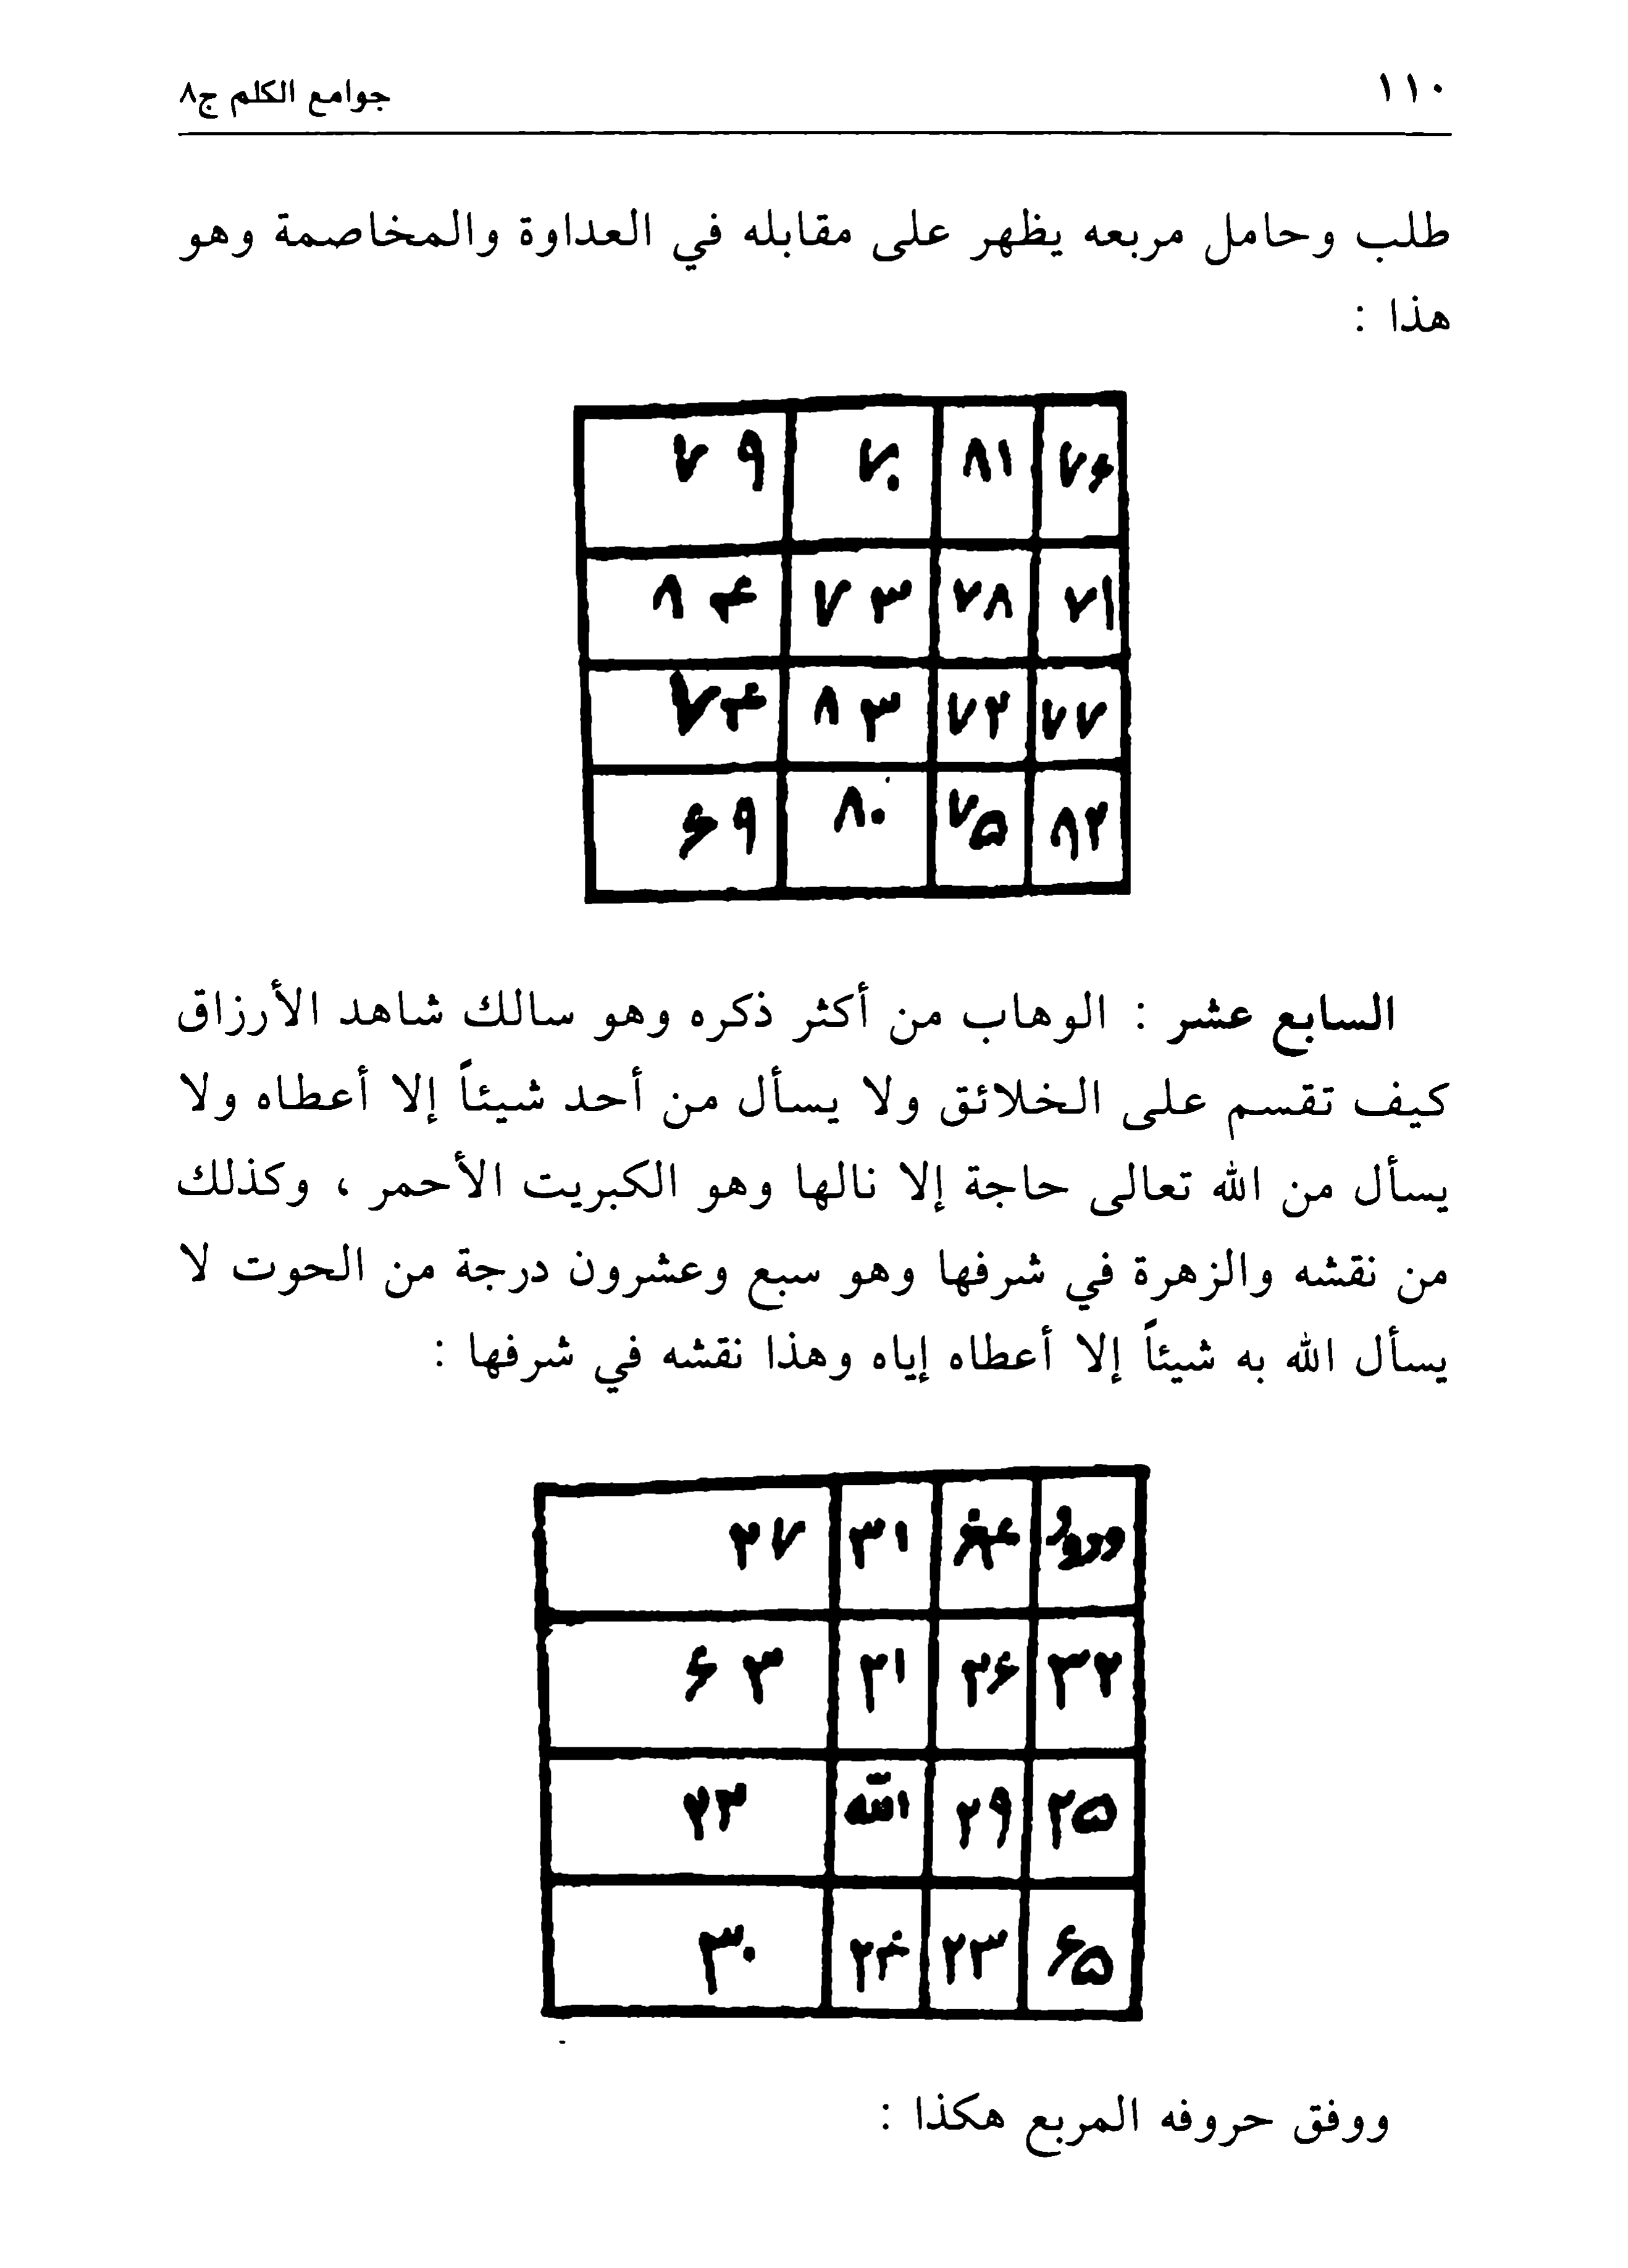 ١١٠ جوامع الكلم ج٨
طلب وحامل مربعه يظهر على مقابله في العداوة والمخاصمة وهو
هذا :
٧۶ ٨١ ٧٠ ٧٩
٧١ ٧٨ ٧٣ ٨۴
٧٧ ٧٢ ٨٣ ٧۴
٨٢ ٧۵ ٨٠ ۶٩
السابع عشر : الوهاب من أكثر ذكره وهو سالك شاهد الأرزاق
كيف تقسم على الخلائق ولا يسأل من أحد شيئاً إلا أعطاه ولا
يسأل من الله تعالى حاجة إلا نالها وهو الكبريت الأحمر ، وكذلك
من نقشه والزهرة في شرفها وهو سبع وعشرون درجة من الحوت لا
يسأل الله به شيئاً إلا أعطاه إياه وهذا نقشه في شرفها :
ودود ۶۴ ٣١ ٢٧
٣٢ ٢۶ ٢١ ۶٣
٢۵ ٢٩ الله ٢٢
۶۵ ٢٣ ٢۴ ٣٠
ووفق حروفه المربع هكذا :